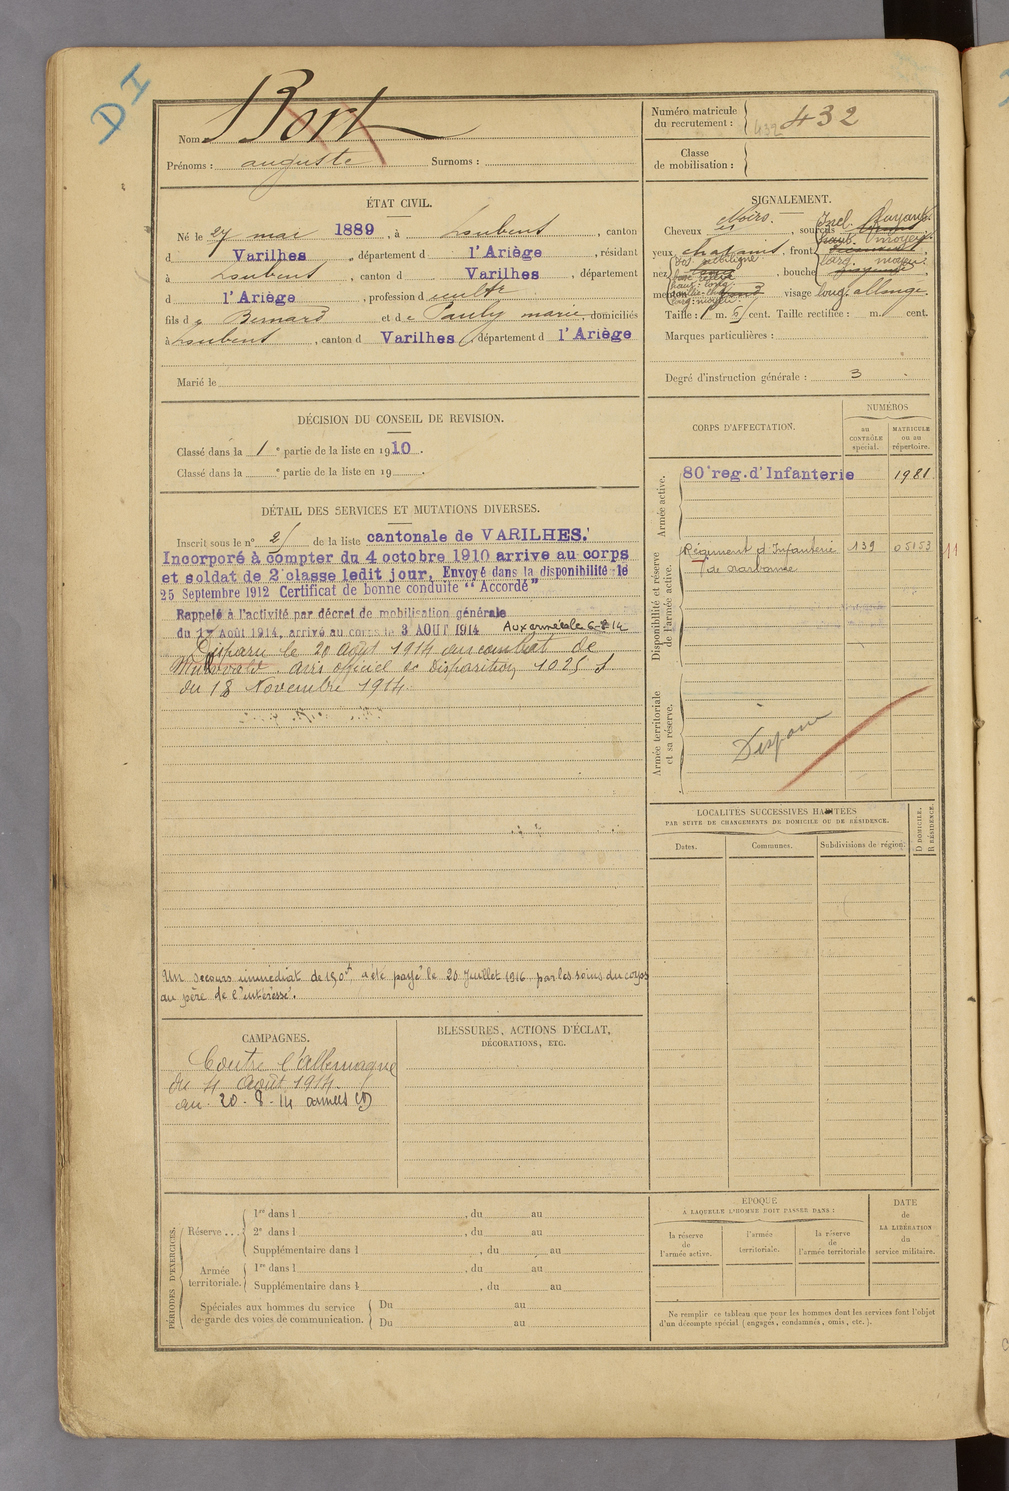 DI
Nom Bort
Prénoms : auguste Surnoms :
Numéro matricule du recrutement : 432 432
Classe de mobilisation :
ÉTAT CIVIL.
Né le 27 mai 1889, à Loubens, canton
d Varilhes, département d l'Ariège, résidant
à Loubens, canton d Varilhes, département
d l'Ariège, profession d cultr
fils de Bernard et de Pauly marie, domiciliés
à Loubens, canton d Varilhes, département d l'Ariège
Marié le
SIGNALEMENT.
Cheveux Noirs, sourcils
yeux chatains, front
nez, bouche
menton rond visage long. allongé.
Taille : 1 m. cent. Taille rectifiée : m. cent.
Marques particulières :
Degré d'instruction générale : 3
DÉCISION DU CONSEIL DE REVISION.
Classé dans la 1e partie de la liste en 1910.
Classé dans la e partie de la liste en 19 .
DÉTAIL DES SERVICES ET MUTATIONS DIVERSES.
Inscrit sous le n° 2 de la liste cantonale de VARILHES.
Incorporé à compter du 4 octobre 1910 arrive au corps
et soldat de 2e classe ledit jour, Envoyé dans la disponibilité le
25 Septembre 1912 Certificat de bonne conduite "Accordé"
Rappelé à l'activité par décret de mobilisation générale
du 1er Août 1914, arrivé au corps le 3 AOUT 1914 Aux armées le 6-8-14
Disparu le 20 août 1914 au combat de
avis officiel de disparition 1025 S
du 18 Novembre 1914.
Un secours immédiat de 150f a été payé le 20 Juillet 1916 par les soins du corps
au père de l'intéressé.
CORPS D'AFFECTATION.
NUMÉROS
au CONTRÔLE spécial.
MATRICULE ou au répertoire.
Armée active.
80e reg. d'Infanterie 1981
Disponibilité et réserve de l'armée active.
Régiment d'Infanterie 139 05153 11
de Narbonne
Armée territoriale et sa réserve.
Disparu
LOCALITÉS SUCCESSIVES HABITÉES
PAR SUITE DE CHANGEMENTS DE DOMICILE OU DE RÉSIDENCE.
Dates. Communes. Subdivisions de région.
D DOMICILE. R RÉSIDENCE.
CAMPAGNES.
Contre l'Allemagne
du 4 Août 1914.
au 20-8-14 armées (D)
BLESSURES, ACTIONS D'ÉCLAT,
DÉCORATIONS, ETC.
PÉRIODES D'EXERCICES.
Réserve ...
1re dans l , du au
2e dans l , du au
Supplémentaire dans l , du au
Armée territoriale.
1re dans l , du au
Supplémentaire dans l , du au
Spéciales aux hommes du service
de garde des voies de communication.
Du au
Du au
EPOQUE
A LAQUELLE L'HOMME DOIT PASSER DANS :
la réserve de l'armée active.
l'armée territoriale.
la réserve de l'armée territoriale
DATE de LA LIBÉRATION du service militaire.
Ne remplir ce tableau que pour les hommes dont les services font l'objet
d'un décompte spécial (engagés, condamnés, omis, etc.).